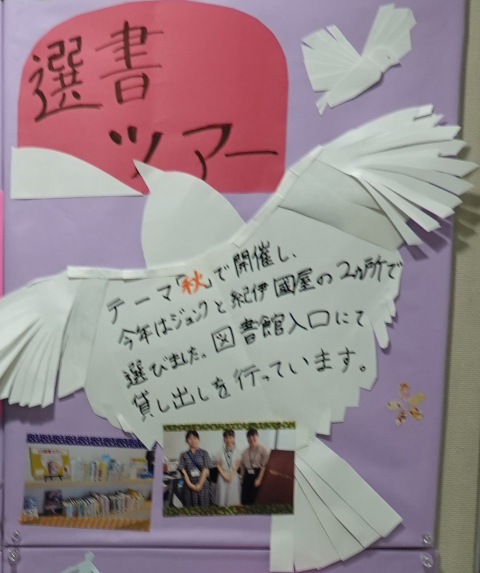 選書
ツアー
テーマ「秋」で開催し、
今年はジュンクと紀伊國屋の2ヵ所で
選びました。図書館入口にて
貸し出しを行っています。